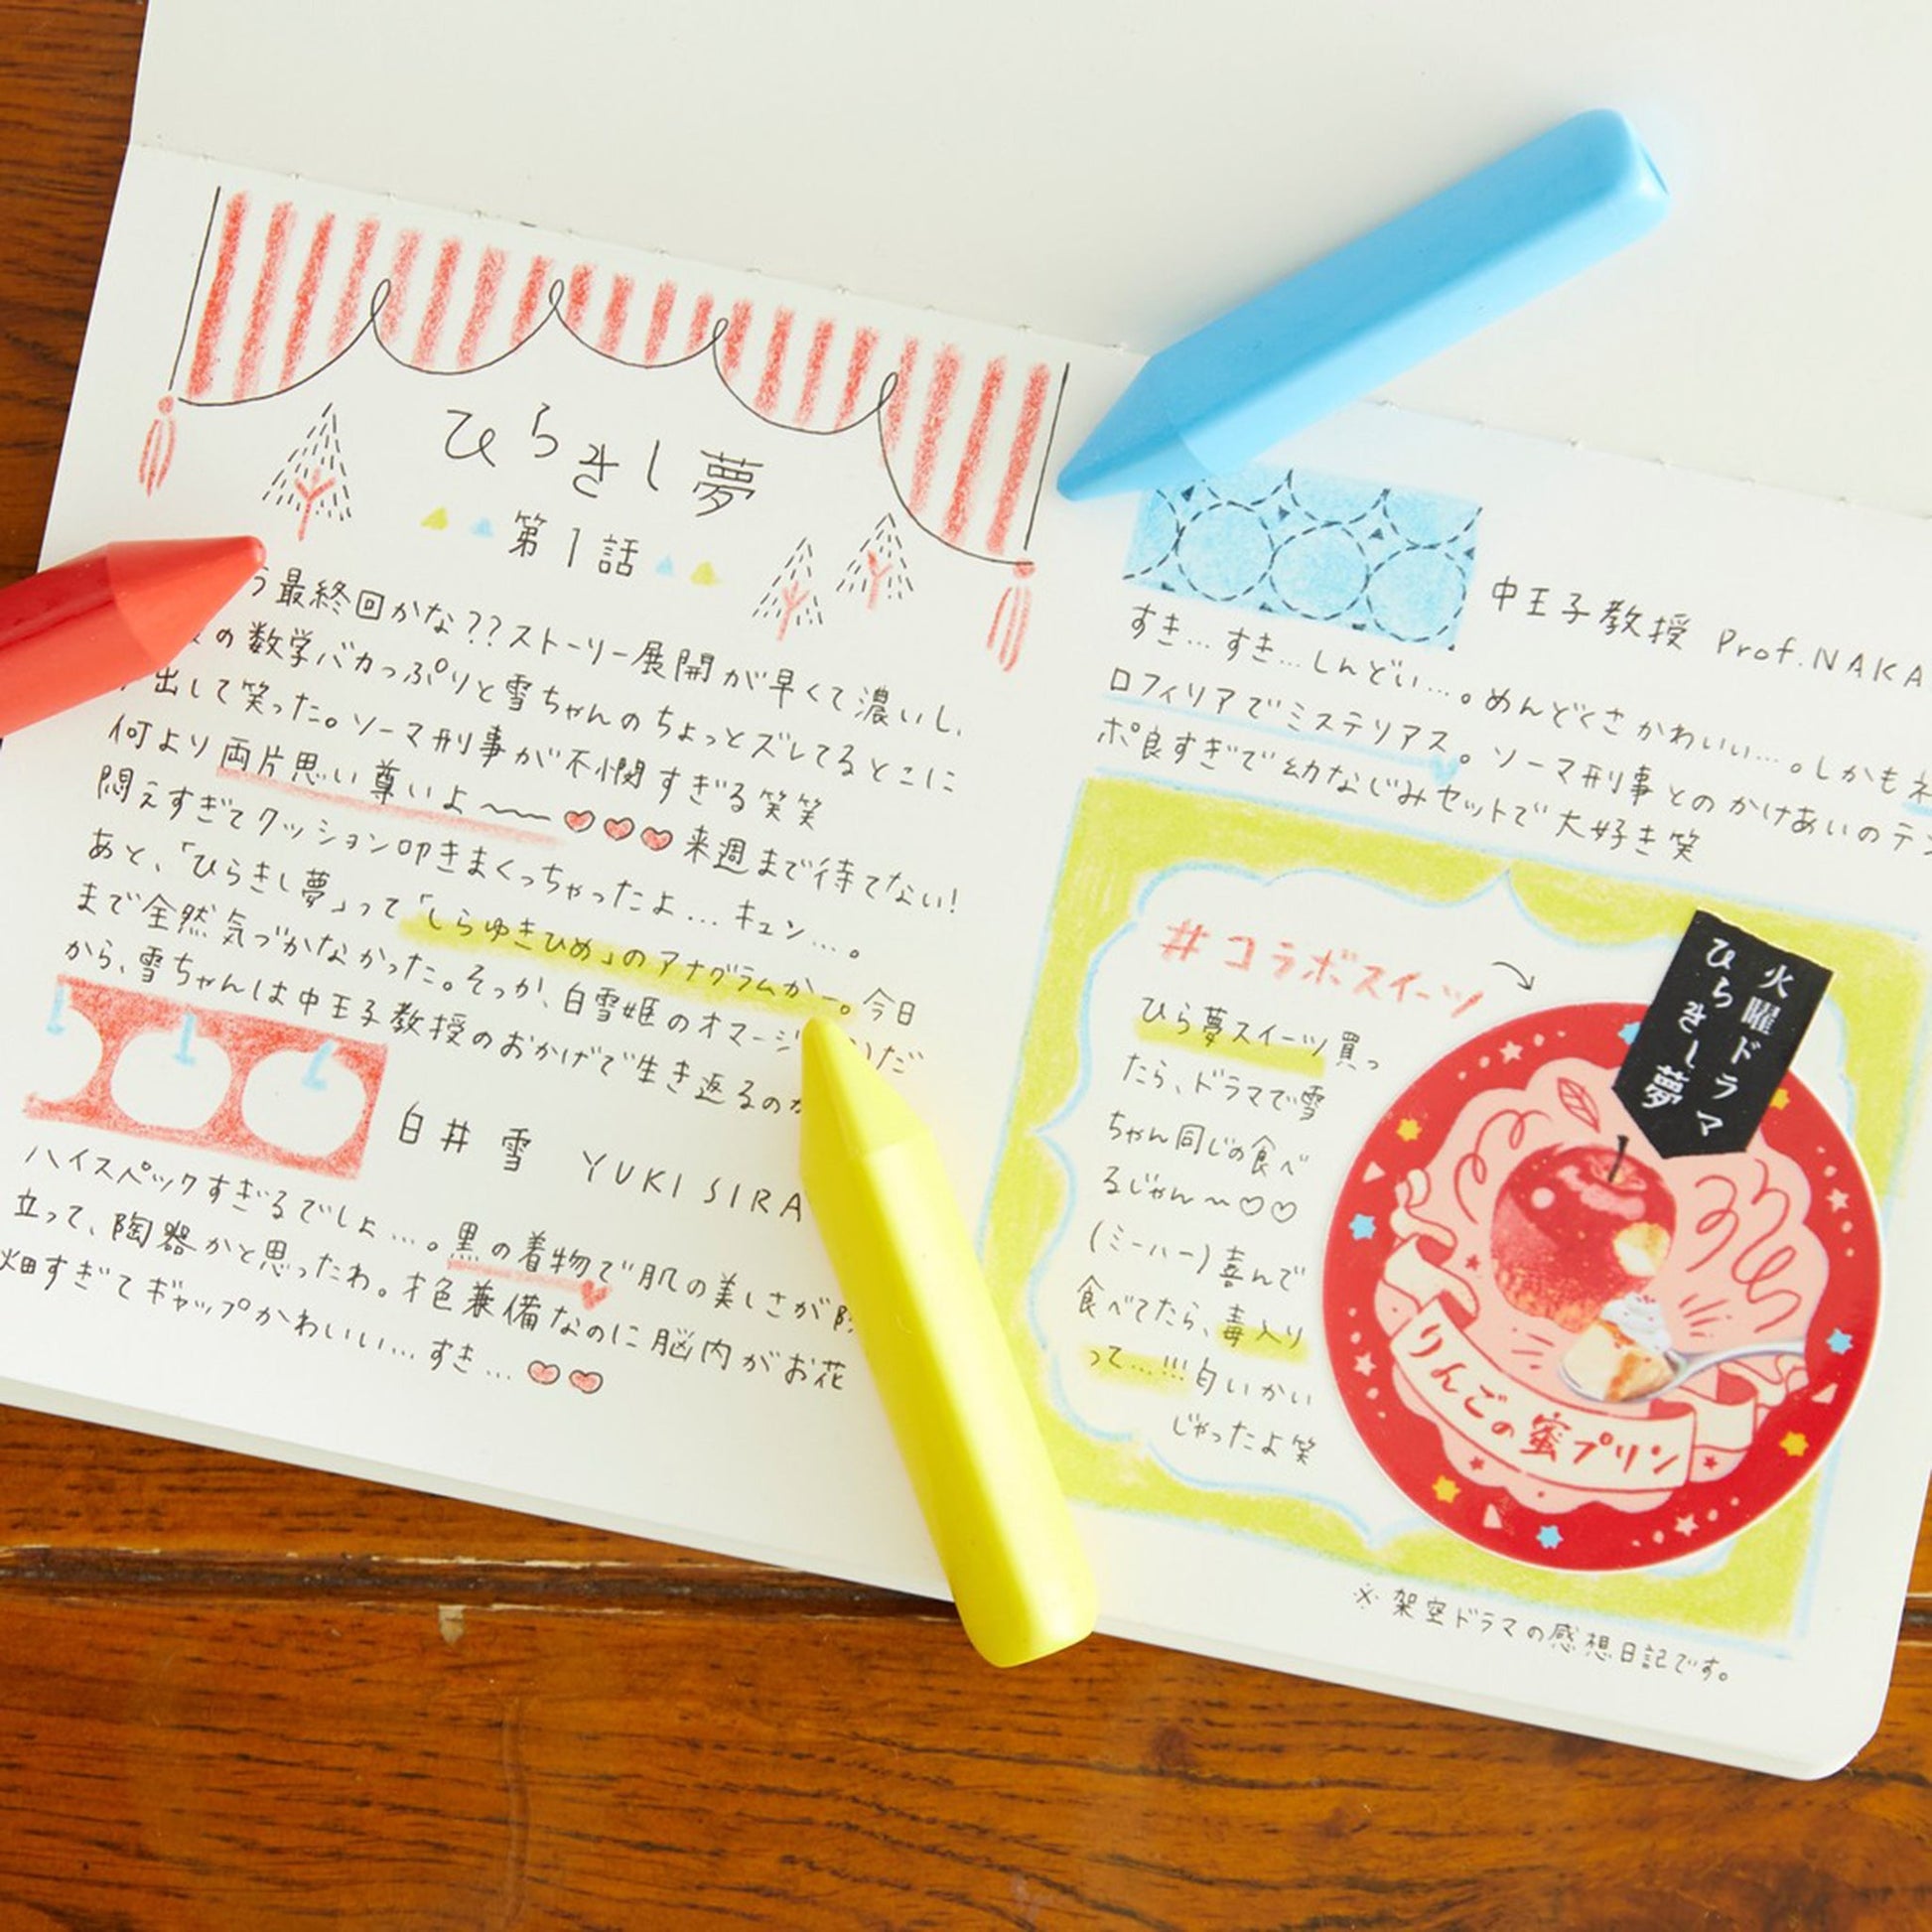 ひらきし夢
第1話
う最終回かな??ストーリー展開が早くて濃いし、
の数学バカっぷりと雪ちゃんのちょっとズレてるとこに
出して笑った。ソーマ刑事が不憫すぎる笑笑
何より両片思い尊いよ〜〜♡♡♡来週まで待てない!
悶えすぎてクッション叩きまくっちゃったよ…キュン…。
あと、「ひらきし夢」って「しらゆきひめ」のアナグラムかー。今日
まで全然気づかなかった。そっか、白雪姫のオマージ だ
から、雪ちゃんは中王子教授のおかげで生き返るの
白井 雪 YUKI SIRA
ハイスペックすぎるでしょ…。黒の着物で肌の美しさが
立って、陶器かと思ったわ。才色兼備なのに脳内がお花
畑すぎてギャップかわいい…すき…♡♡
中王子教授 Prof.NAKA
すき…すき…しんどい…。めんどくさかわいい…。しかも
ロフィリアでミステリアス。ソーマ刑事とのかけあいのテン
ポ良すぎで幼なじみセットで大好き笑
#コラボスイーツ
ひら夢スイーツ買っ
たら、ドラマで雪
ちゃん同じの食べ
るじゃん〜♡♡
(ミーハー)喜んで
食べてたら、毒入り
って…!!!匂いかい
じゃったよ笑
火曜ドラマ
ひらきし夢
りんごの蜜プリン
※架空ドラマの感想日記です。